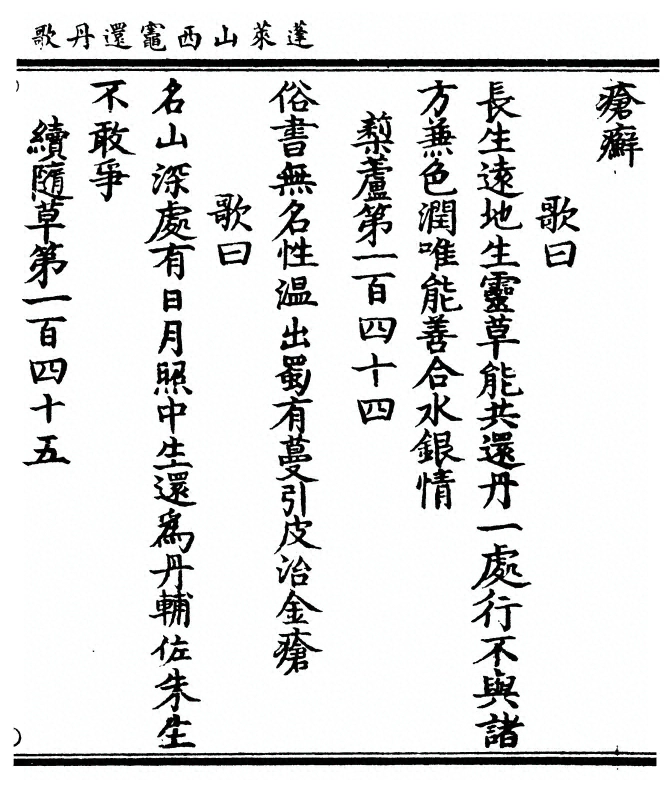 蓬萊山西竈還丹歌
瘡癬
歌曰
長生遠地生靈草能共還丹一處行不與諸
方蕪色潤唯能善合水銀情
䔧蘆第一百四十四
俗書無名性温出蜀有蔓引皮治金瘡
歌曰
名山深處有日月照中生還爲丹輔佐朱生
不敢爭
續隨草第一百四十五